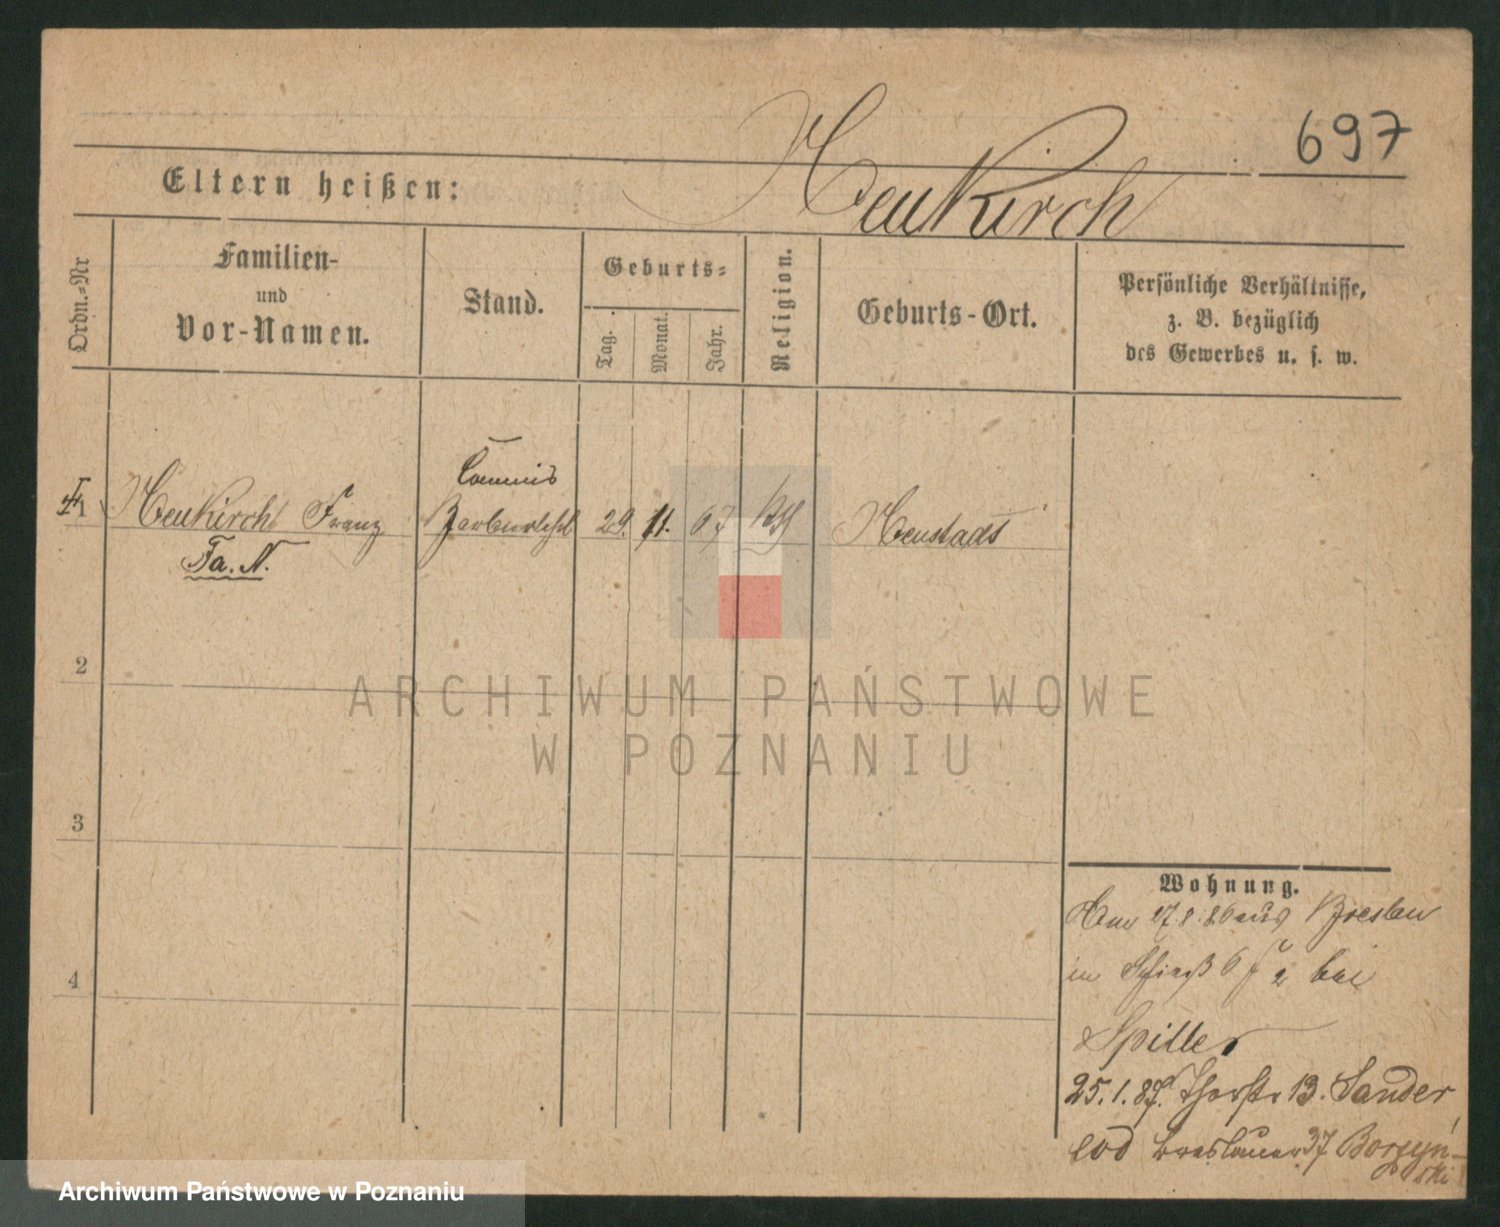 697
Neukirch
Eltern heißen:
Ordn.-Nr
Familien-
und
Vor-Namen.
Stand.
Geburts-
Tag.
Monat.
Jahr.
Religion.
Geburts-Ort.
Persönliche Verhältnisse,
z. B. bezüglich
des Gewerbes u. s. w.
Commis
1 Neukirch Franz 29. 11. 67 Neustadt
Fa. N.
2
ARCHIWUM PAŃSTWOWE
W POZNANIU
3
Wohnung.
27.8.86 aus Breslau
in 6 2 bei
4
Spiller
25.1.87. 13. Sander
eod Breslauer 37 Borzyń-
ski
Archiwum Państwowe w Poznaniu